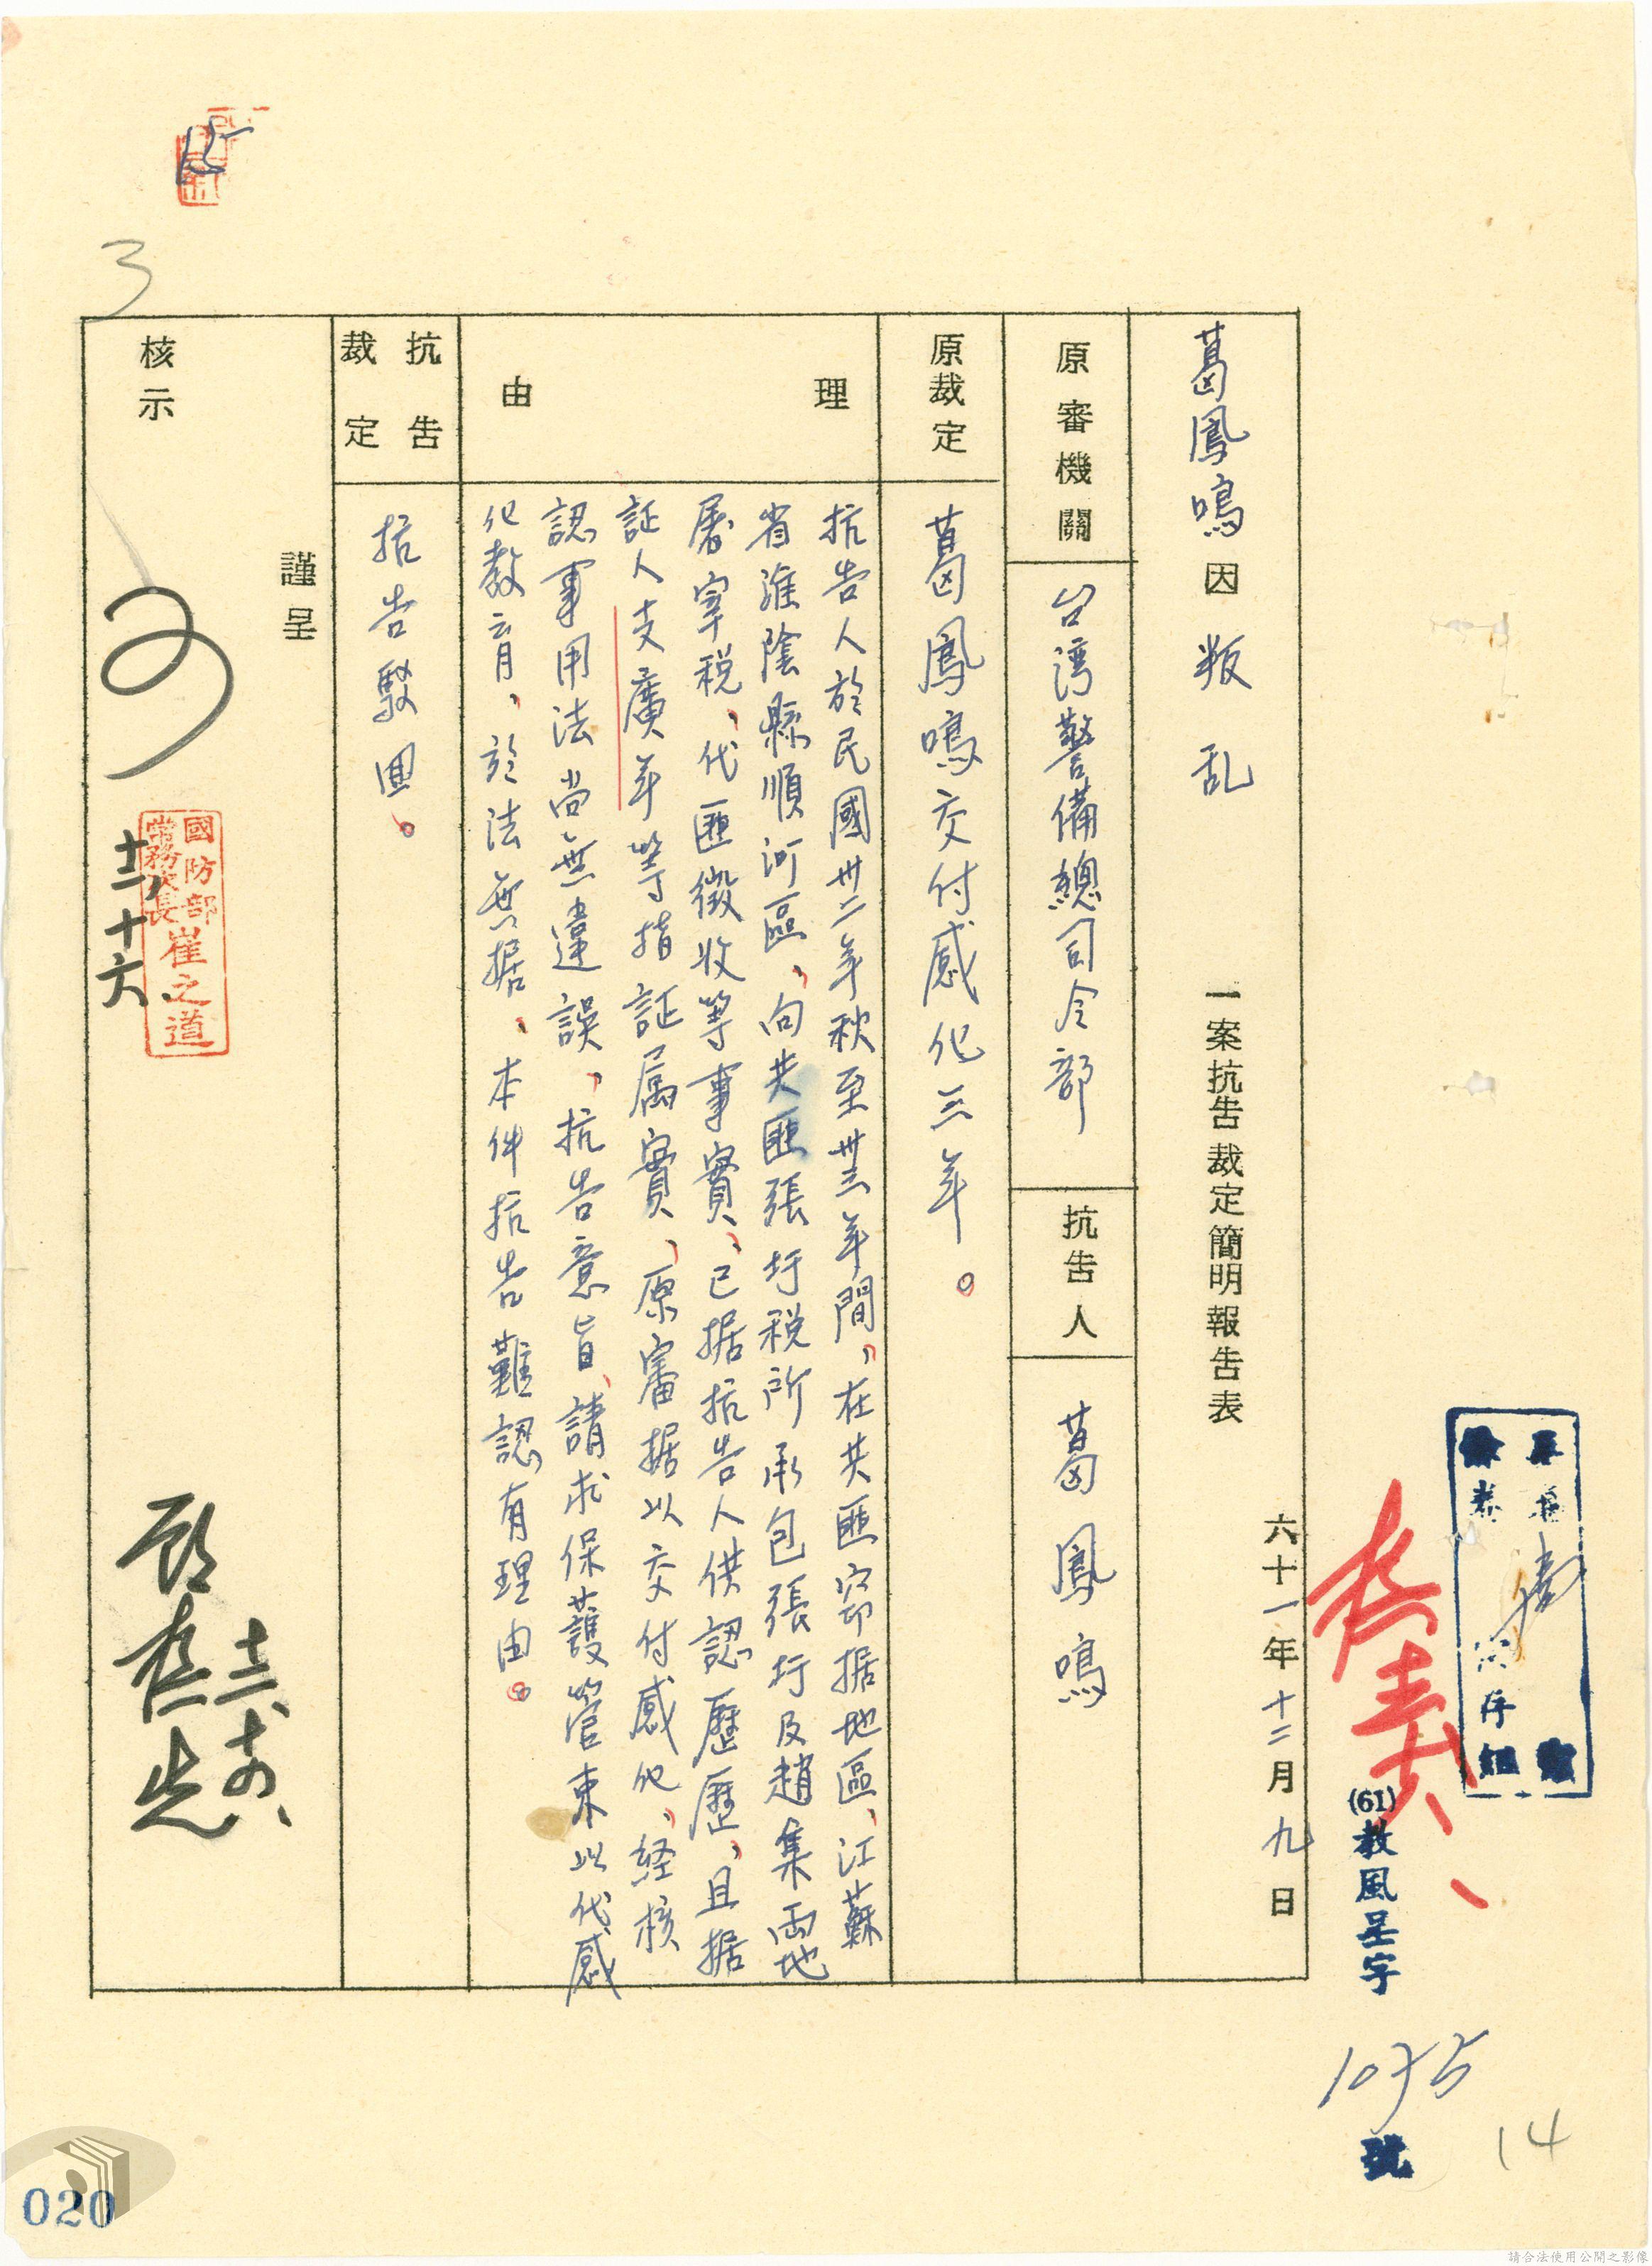 (61)教風呈字
號
14
六十一年十二月九日
葛鳳鳴因叛乱一案抗告裁定簡明報告表
原審機關
台湾警備總司令部
抗告人
葛鳳鳴
原裁定
葛鳳鳴交付感化三年。
理由
抗告人於民國卅二年秋至卅三年間,在共匪窃据地區、江蘇
省淮陰縣順河區,向共匪張圩税所承包張圩及趙集両地
屠宰税、代匪徵收等事實、已据抗告人供認歷歷,且据
証人支廣年等指証属實,原審据以交付感化,経核
認事用法尚無違誤,抗告意旨,請求保護管束以代感
化教育,於法無据,本件抗告難認有理由。
抗告裁定
抗告駁囬。
謹呈
核示
可
國防部
常務次長
崔之道
十二、十六
3
020
請合法使用公開之影像